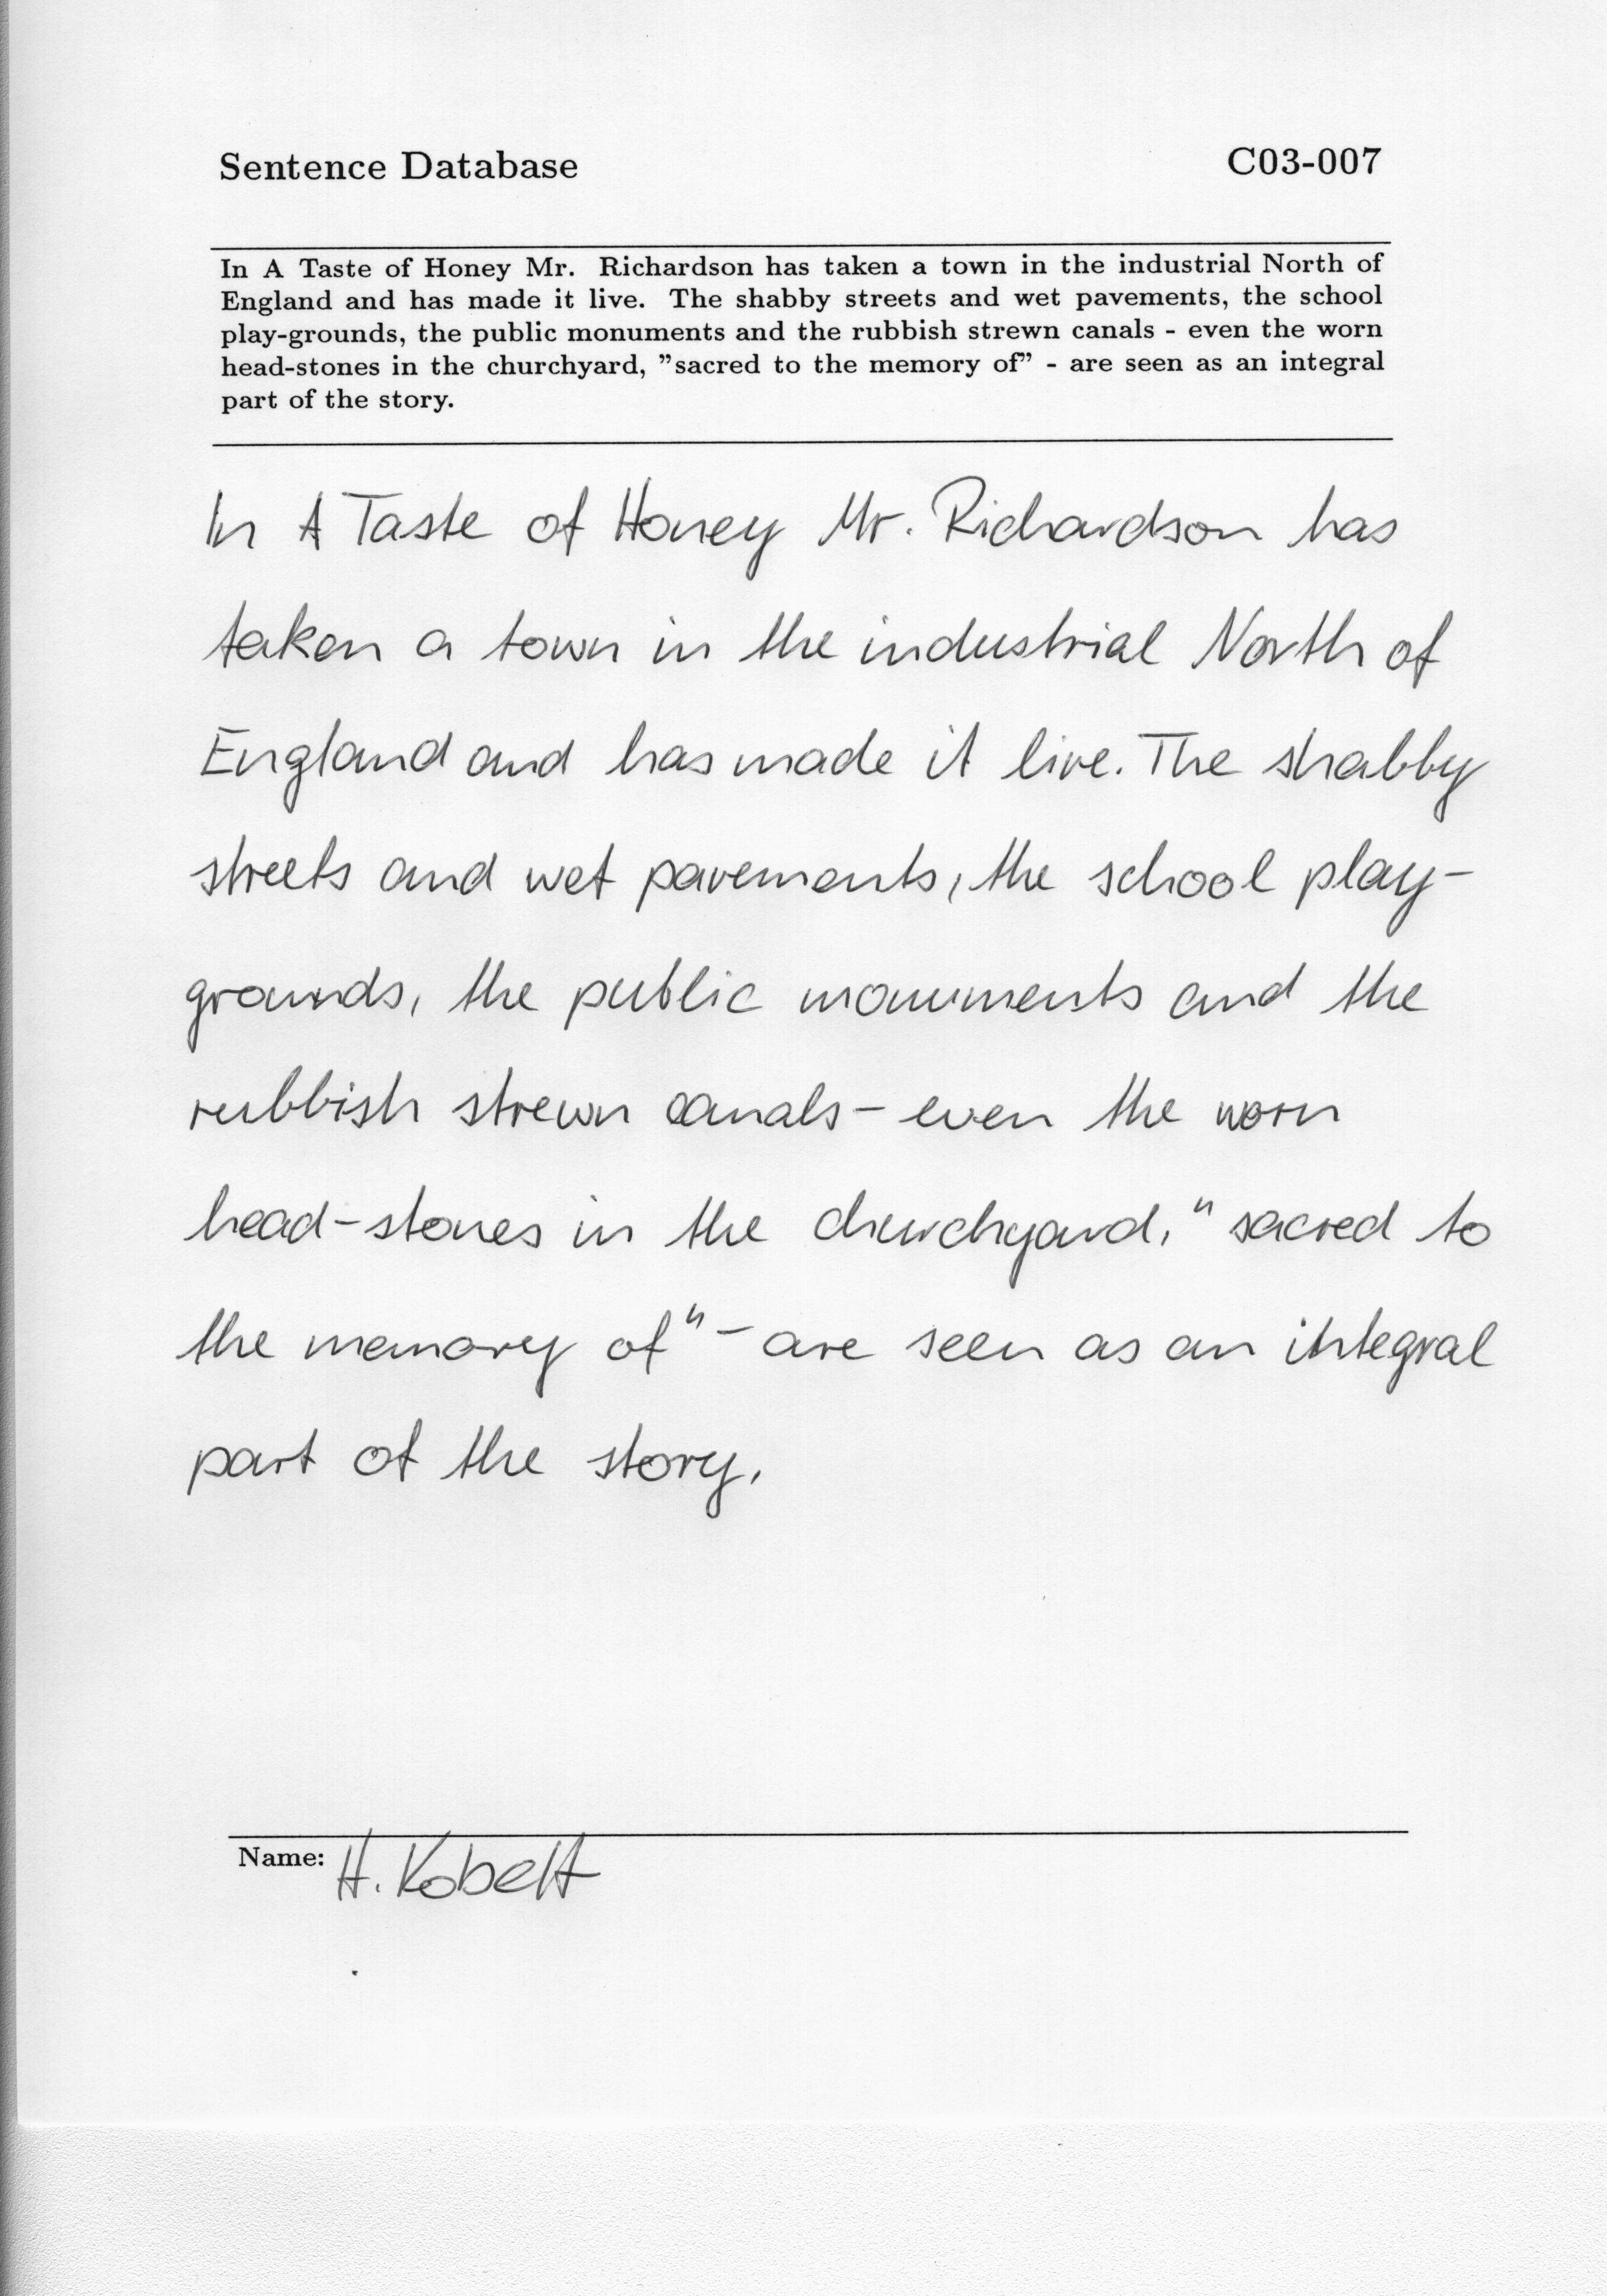 Sentence Database C03-007
In A Taste of Honey Mr. Richardson has taken a town in the industrial North of
England and has made it live. The shabby streets and wet pavements, the school
play-grounds, the public monuments and the rubbish strewn canals - even the worn
head-stones in the churchyard, "sacred to the memory of" - are seen as an integral
part of the story.
In A Taste of Honey Mr. Richardson has
taken a town in the industrial North of
England and has made it live. The shabby
streets and wet pavements, the school play-
grounds, the public monuments and the
rubbish strewn canals - even the worn
head-stones in the churchyard, "sacred to
the memory of" - are seen as an integral
part of the story.
Name: H. Kobelt